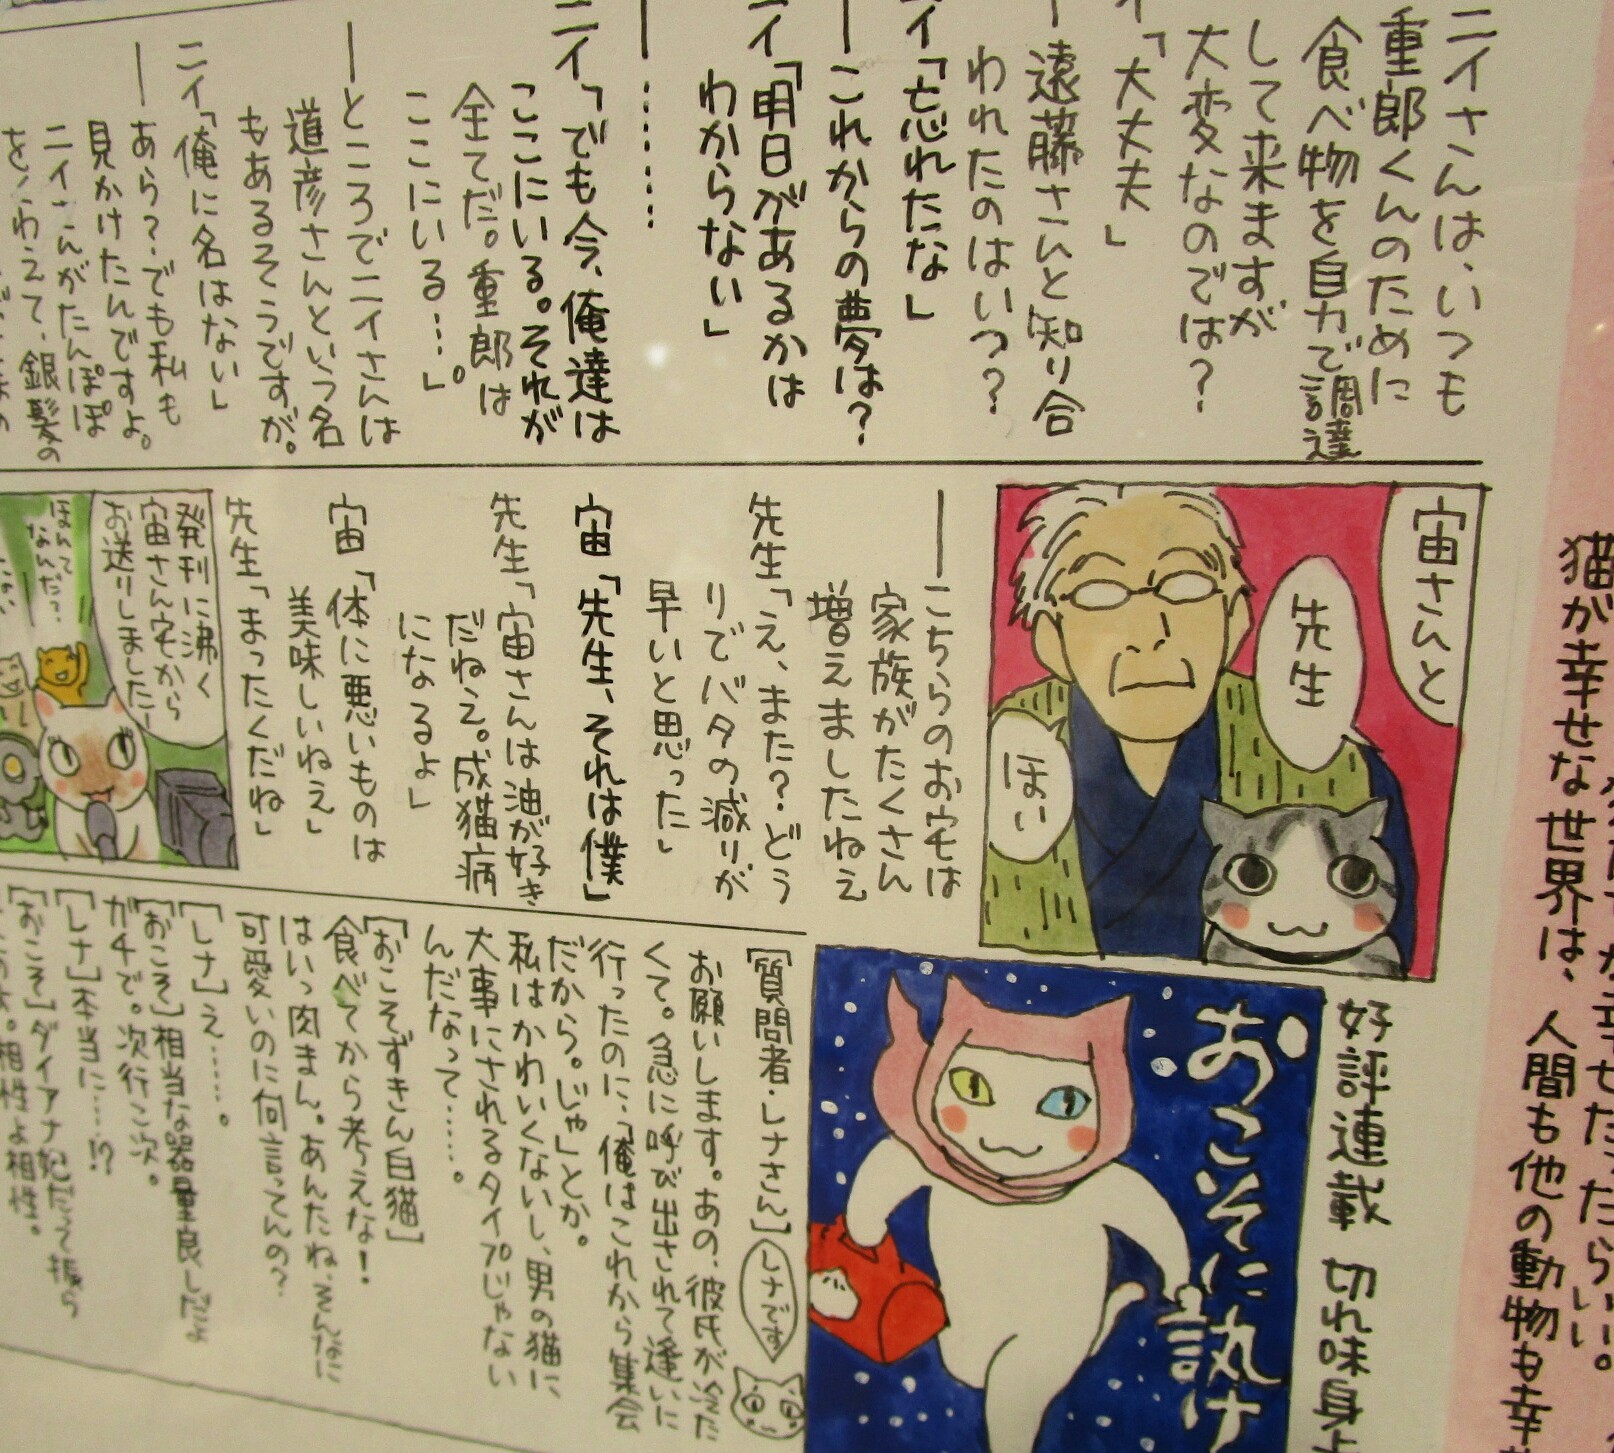 猫が幸せな世界は、人間も他の動物も幸
ニイさんは、いつも
重郎くんのために
食べ物を自力で調達
して来ますが
大変なのでは?
「大丈夫」
―遠藤さんと知り合
われたのはいつ?
ニイ「忘れたな」
―これからの夢は?
ニイ「明日があるかは
わからない」
―………
ニイ「でも今、俺達は
ここにいる。それが
全てだ。重郎は
ここにいる…。」
―ところでニイさんは
道彦さんという名
もあるそうですが。
ニイ「俺に名はない」
―あら?でも私も
見かけたんですよ。
ニイさんがたんぽぽ
をくわえて、銀髪の
宙さんと
先生
ほい
―こちらのお宅は
家族がたくさん
増えましたねえ
先生「え、また?どう
りでバタの減りが
早いと思った」
宙「先生、それは僕」
先生「宙さんは油が好き
だねえ。成猫病
になるよ」
宙「体に悪いものは
美味しいねえ」
先生「まったくだね」
発刊に沸く
宙さん宅から
お送りしました―
ほんで
なんだ?
好評連載 切れ味身上
おこそに訊け
[質問者・レナさん]
レナです
お願いします。あの、彼氏が冷た
くて。急に呼び出されて逢いに
行ったのに、「俺はこれから集会
だから。じゃ」とか。
私はかわいくないし、男の猫に
大事にされるタイプじゃない
んだなって……。
[おこそずきん白猫]
食べてから考えな!
はいっ肉まん。あんたね、そんなに
可愛いのに何言ってんの?
[レナ]え……。
[おこそ]相当な器量良しだよ
ガチで。次行こ次。
[レナ]本当に……!?
[おこそ]ダイアナ妃だって振ら